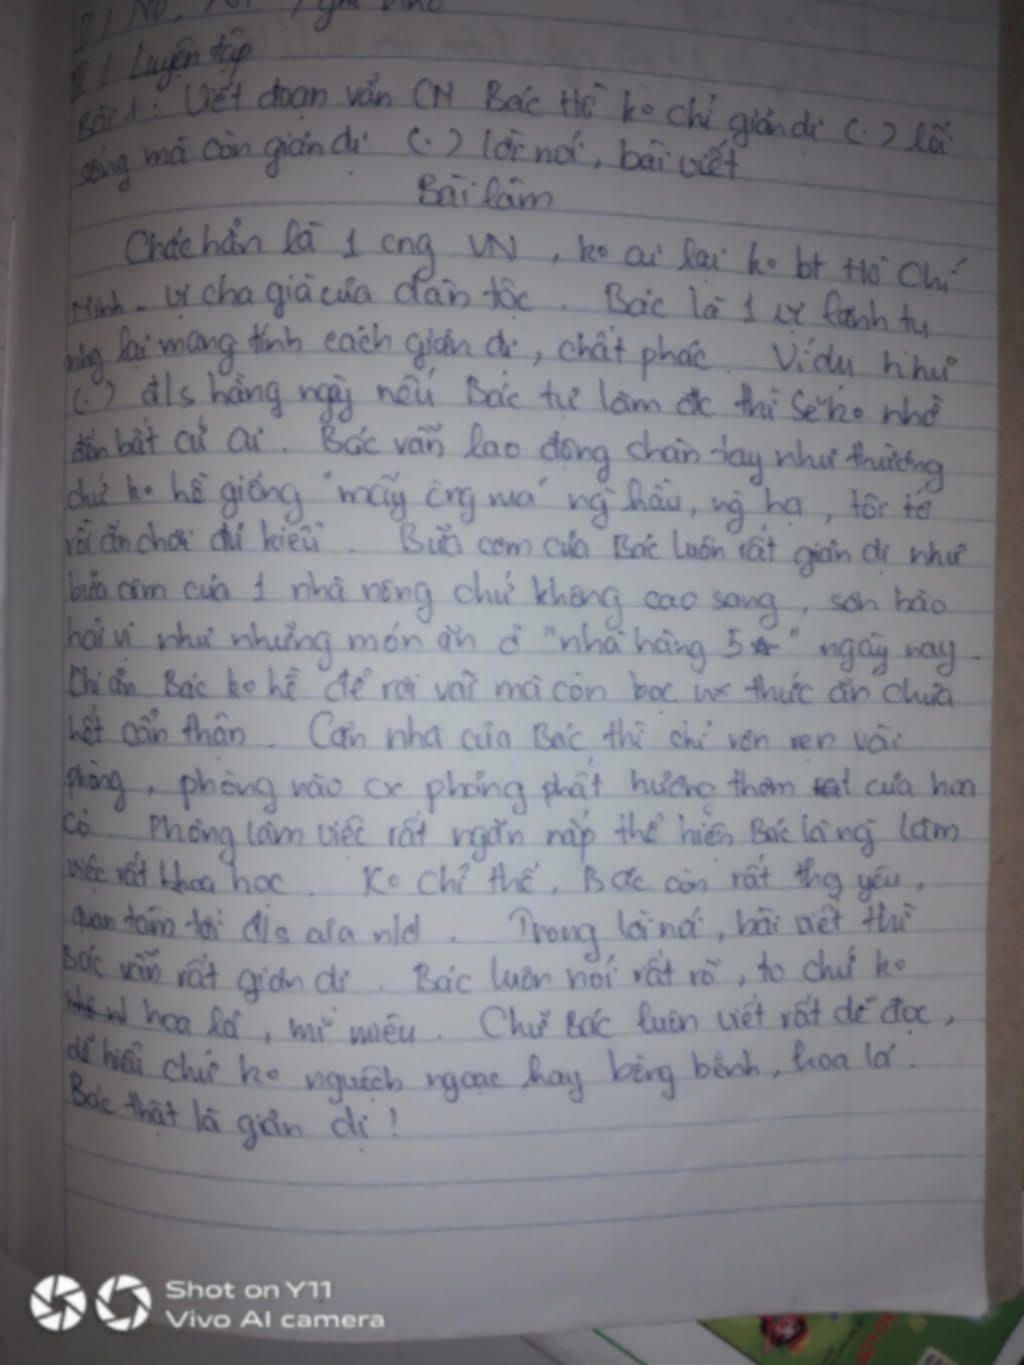 II / Luyện tập
Bài 1: Viết đoạn văn CM Bác Hồ ko chỉ giản dị (.) lối
sống mà còn giản dị (.) lời nói, bài viết
Bài làm
Chắc hẳn là 1 cng VN, ko ai lại ko bt Hồ Chí
Minh - vị cha già của dân tộc. Bác là 1 vị lãnh tụ
nhg lại mang tính cách giản dị, chất phác. Ví dụ như
(.) đ/s hằng ngày nếu Bác tự làm đc thì sẽ ko nhờ
đến bất cứ ai. Bác vẫn lao động chân tay như thường
chứ ko hề giống "mấy ông vua" ng hầu, ng hạ, tôi tớ
rồi ăn chơi đủ kiểu. Bữa cơm của Bác luôn rất giản dị như
bữa cơm của 1 nhà nông chứ không cao sang, sơn hào
hải vị như những món ăn ở "nhà hàng 5☆" ngày nay.
Khi ăn Bác ko hề để rơi vãi mà còn bọc thức ăn chưa
hết cẩn thận. Căn nhà của Bác thì chỉ vỏn vẹn vài
phòng, phòng nào cx phảng phất hương thơm của hoa
cỏ. Phòng làm việc rất ngăn nắp thể hiện Bác là ng làm
việc rất khoa học. Ko chỉ thế, Bác còn rất thg yêu,
quan tâm tới đ/s của nld. Trong lời nói, bài viết thì
Bác vẫn rất giản dị. Bác luôn nói rất rõ, to chứ ko
hoa lá, mĩ miều. Chữ Bác luôn viết rất dễ đọc,
dễ hiểu chứ ko nguệch ngoạc hay bềng bềnh, hoa lá.
Bác thật là giản dị!
Shot on Y11
Vivo AI camera